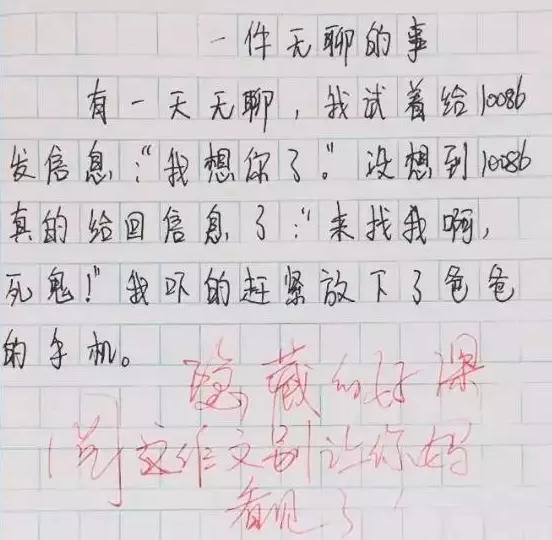 一件无聊的事
有一天无聊，我试着给10086
发信息：“我想你了。”没想到10086
真的给回信息了：“来找我啊，
死鬼！”我吓的赶紧放下了爸爸
的手机。
隐藏的好深
这作文别让你妈
看见了！